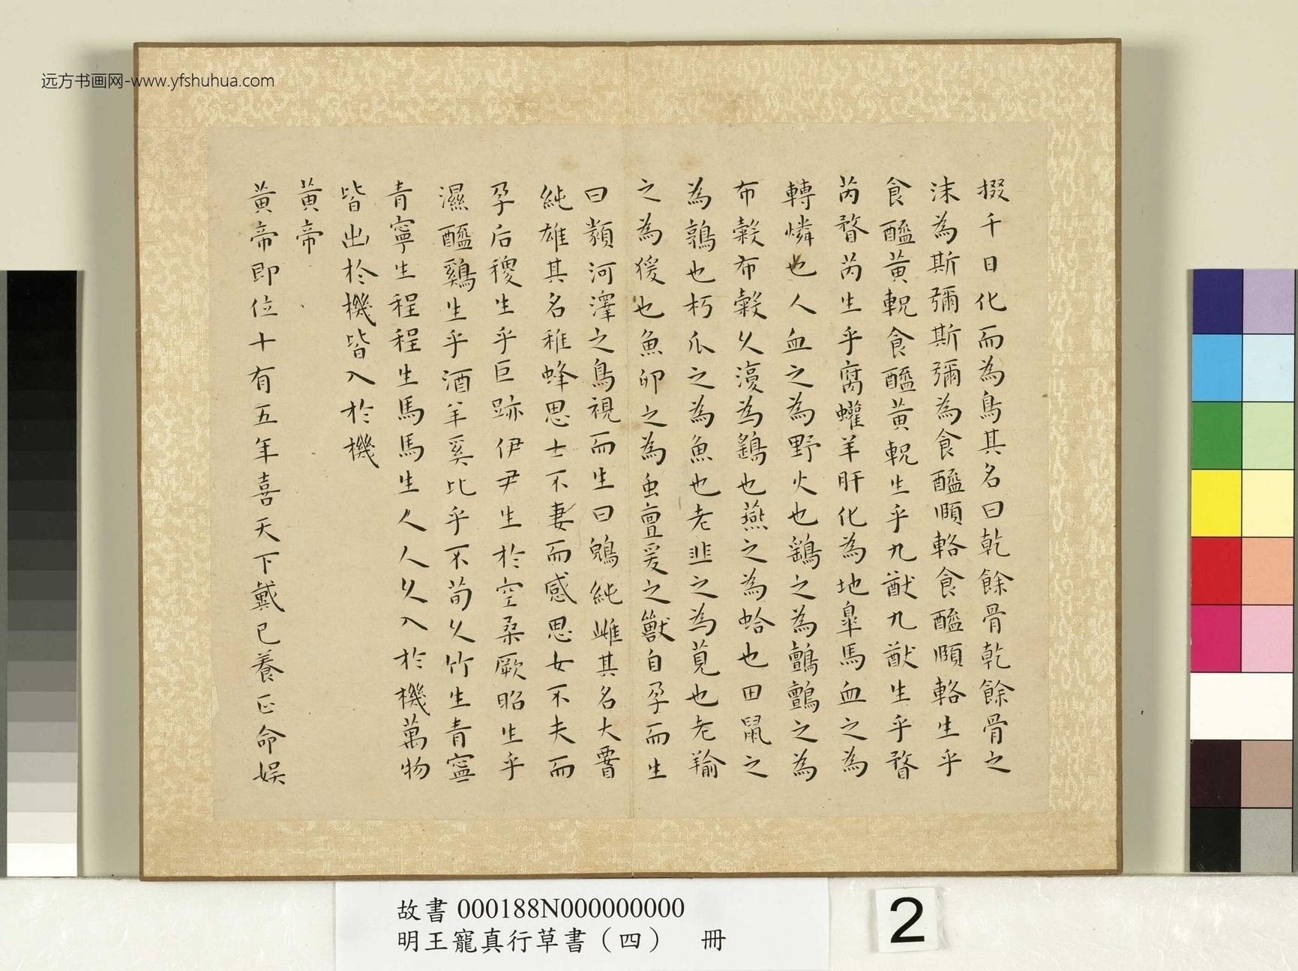 远方书画网-www.yfshuhua.com
掇千日化而為鳥其名曰乾餘骨乾餘骨之
沫為斯彌斯彌為食醯頤輅食醯頤輅生乎
食醯黃軦食醯黃軦生乎九猷九猷生乎瞀
芮瞀芮生乎腐蠸羊肝化為地皐馬血之為
轉憐也人血之為野火也鷂之為鸇鸇之為
布穀布穀久復為鷂也燕之為蛤也田鼠之
為鶉也朽瓜之為魚也老韭之為莧也老羭
之為猨也魚卵之為虫亶爰之獸自孕而生
曰類河澤之鳥視而生曰鶂純雌其名大䙲
純雄其名稚蜂思士不妻而感思女不夫而
孕后稷生乎巨跡伊尹生於空桑厥昭生乎
濕醯雞生乎酒羊奚比乎不荀久竹生青寧
青寧生程程生馬馬生人人久入於機萬物
皆出於機皆入於機
黃帝
黃帝即位十有五年喜天下戴己養正命娛
故書000188N000000000
明王寵真行草書（四） 冊
2